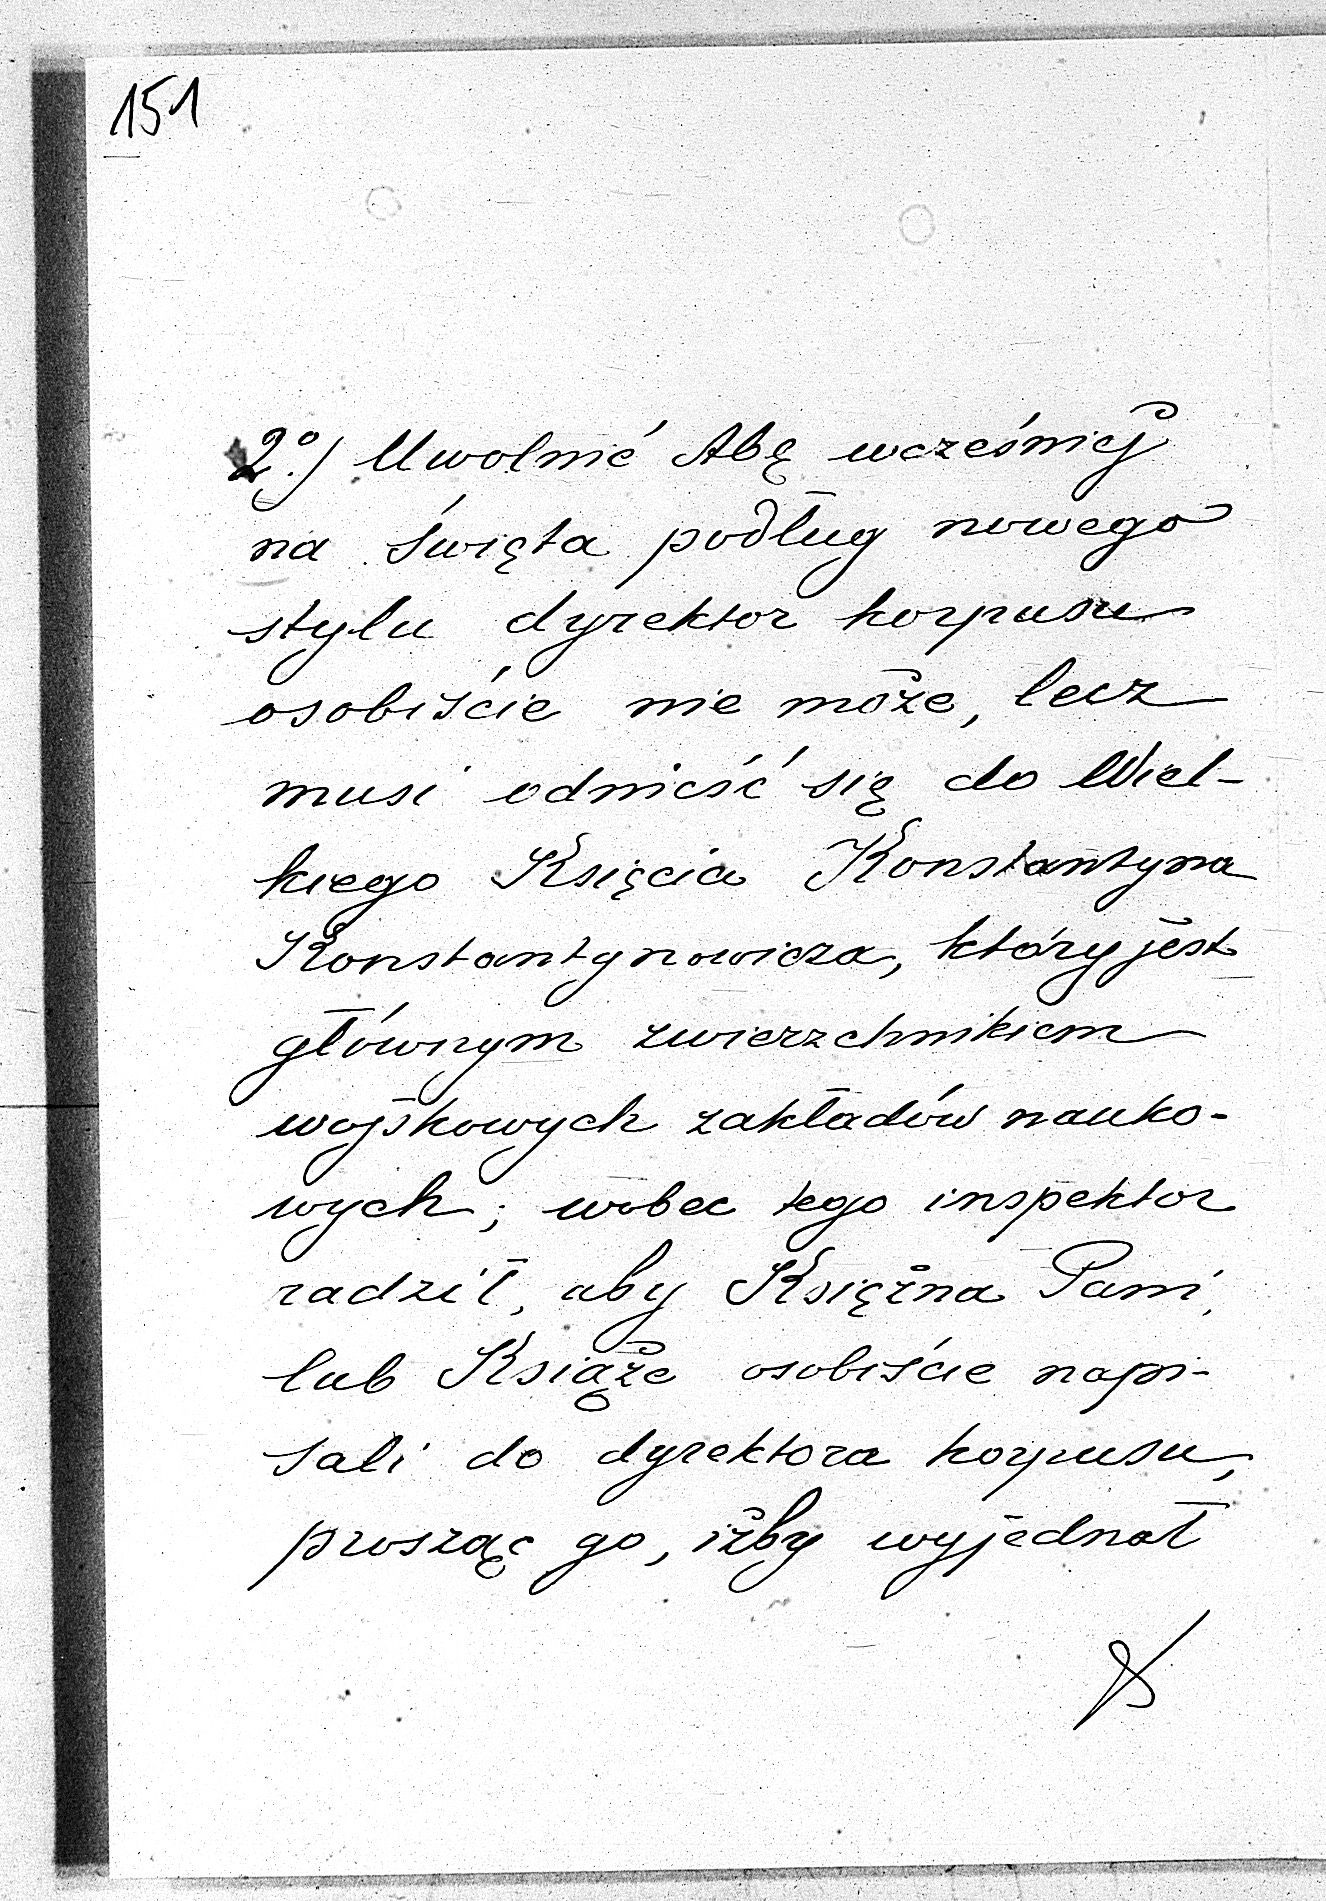 151
2º) Uwolnić Abę wcześniej
na święta podług nowego
stylu dyrektor korpusu
osobiście nie może, lecz
musi odnieść się do Wiel-
kiego Księcia Konstantyna
Konstantynowicza, który jest
głównym zwierzchnikiem
wojskowych zakładów nauko-
wych; wobec tego inspektor
radził, aby Księżna Pani,
lub Książę osobiście napi-
sali do dyrektora korpusu,
prosząc go, iżby wyjednał